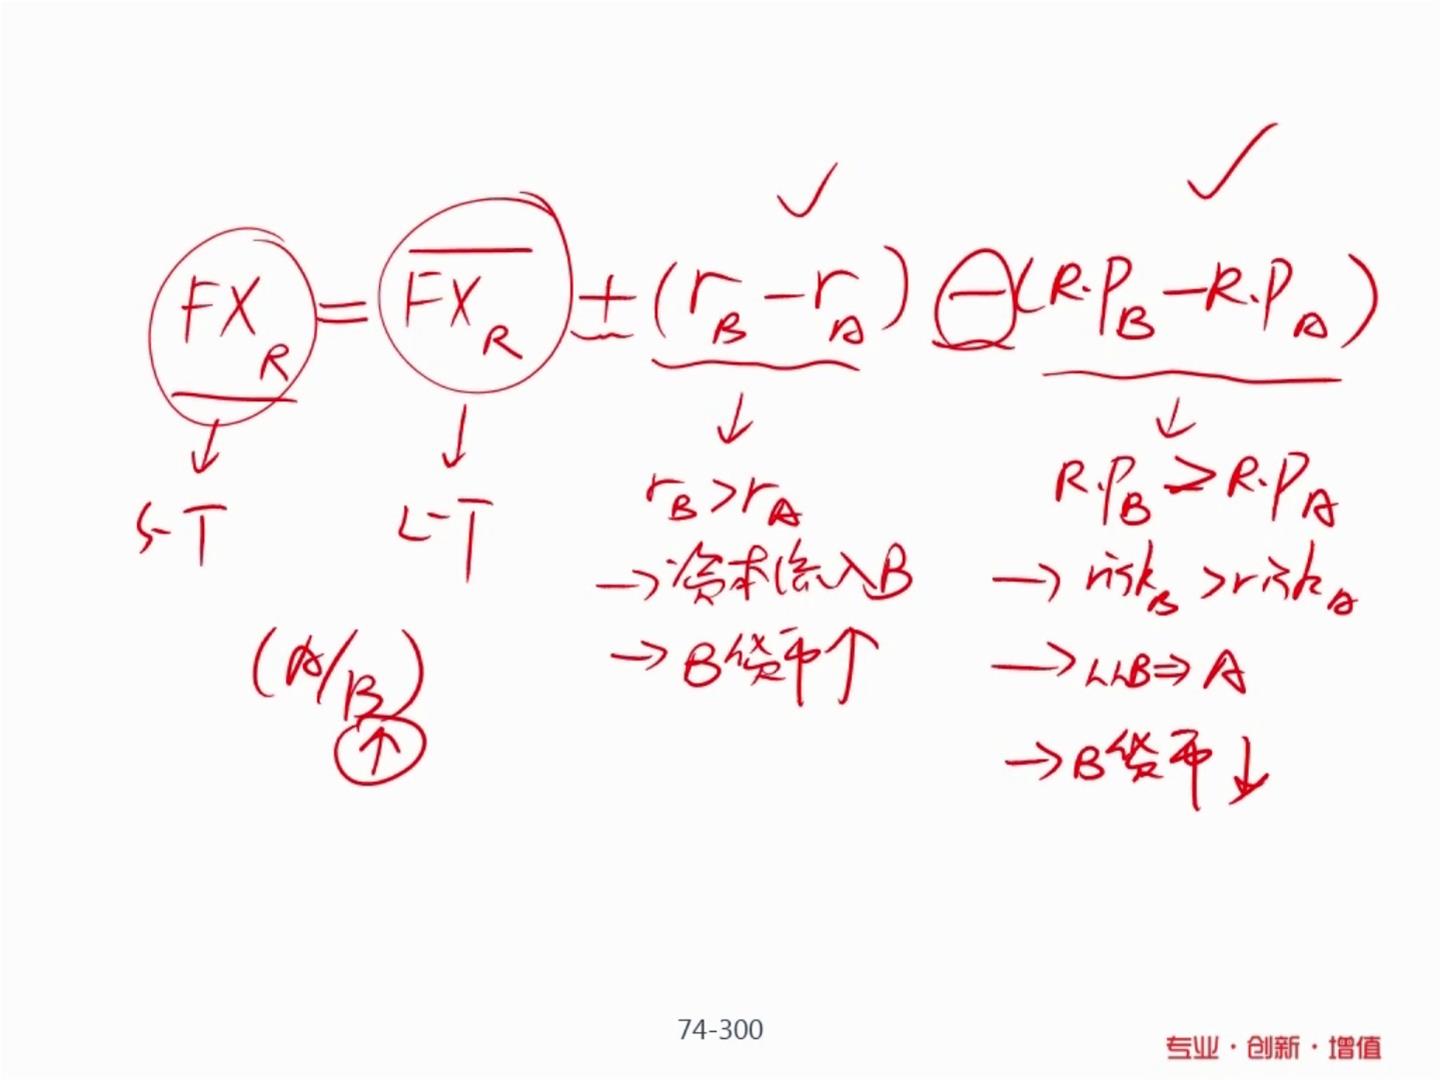 FX_R = \overline{FX}_R + (r_B - r_A) - (R.P_B - R.P_A)
S-T
L-T
(A/B)
↑
r_B > r_A
→ 资本流入B
→ B货币↑
R.P_B > R.P_A
→ risk_B > risk_A
→ 从B⇒A
→ B货币↓
74-300
专业·创新·增值